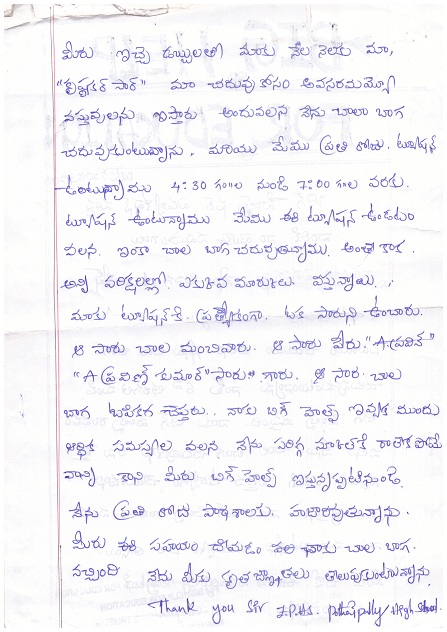 మీరు ఇచ్చె డబ్బులతో మాకు నేల నెలకు మా,
"కృష్ణకర్ సార్" మా చదువు కోసం అవసరమమ్యే
వస్తువులను ఇస్తారు అందువలన నేను చాలా బాగ
చదువుకుంటున్నాను. మరియు మేము ప్రతి రోజు. ట్యూషన్
ఉంటున్నాము 4:30 గం॥ల నుండి 7:00 గం॥ల వరకు.
ట్యూషన్ ఉంటున్నాము మేము ఈ ట్యూషన్ ఉండటం
వలన. ఇంకా చాల బాగ చదువుతున్నాము. అంతే కాక.
అన్ని పరిక్షలల్లో ఎక్కువ మార్కులు వస్తున్నాయి.
మాకు ట్యూషన్‌కి. ప్రత్యేకంగా. ఒక సారున్ని ఉంచారు.
ఆ సారు చాల మంచివారు. ఆ సారు పేరు.
"A ప్రవిణ్ కుమార్" సారు. గారు. ఆ సార్ చాల
బాగ ఓపికగ చెప్తరు.. నాకు బిగ్ హెల్ప్ ఇవ్వక ముందు
ఆర్థిక సమస్యల వలన నేను సరిగ్గ స్కూల్‌కి రాలేకపోతే
వాన్ని కాని మీరు బిగ్ హెల్ప్ ఇస్తున్నప్పటినుండి.
నేను ప్రతి రోజు పాఠశాలకు. హాజరవుతున్నాను.
మీరు ఈ సహయం చేయడం వల నాకు చాల బాగ.
నచ్చింది నేను మీకు కృతజ్ఞతలు తెలుపుకుంటున్నాను.
Thank you Sir Z.P.H.S. pothepally/High School.